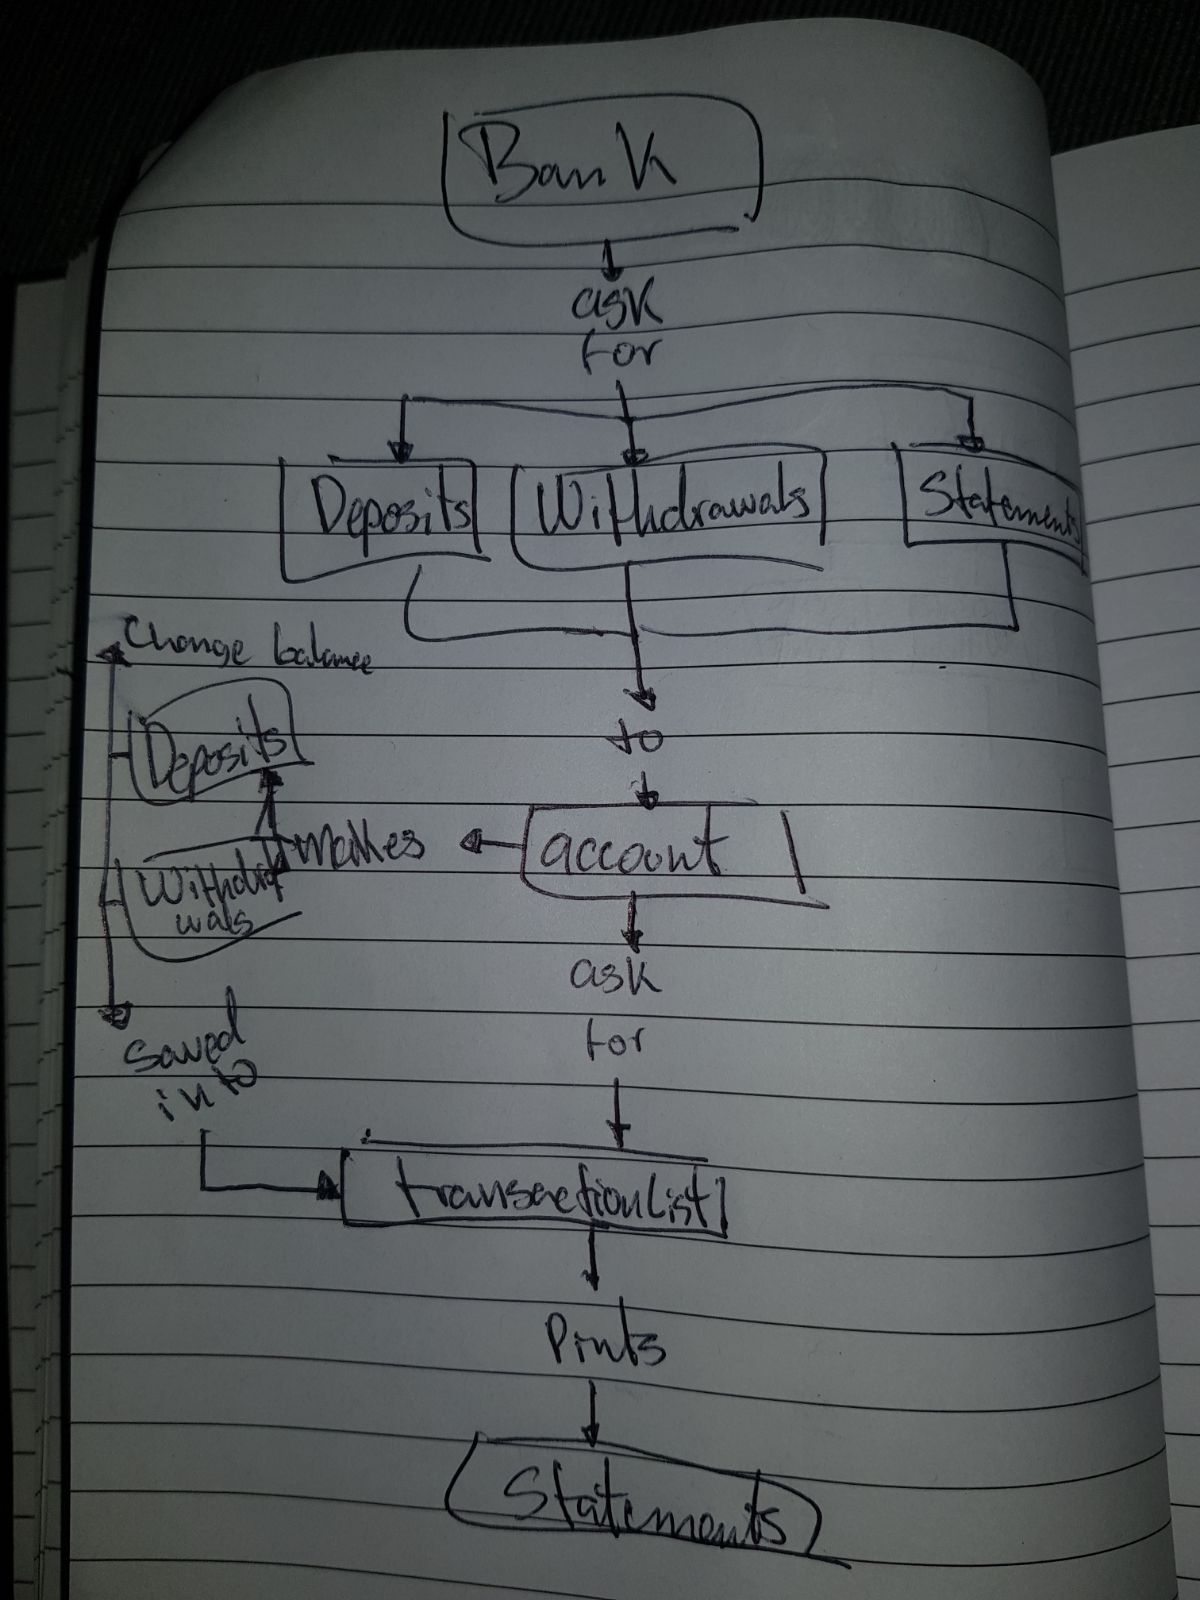 Bank
ask
for
Deposits Withdrawals Statements
to
account
makes
Change balance
Deposits
Withdra
wals
Saved
into
ask
for
transactionList
Pints
Statements